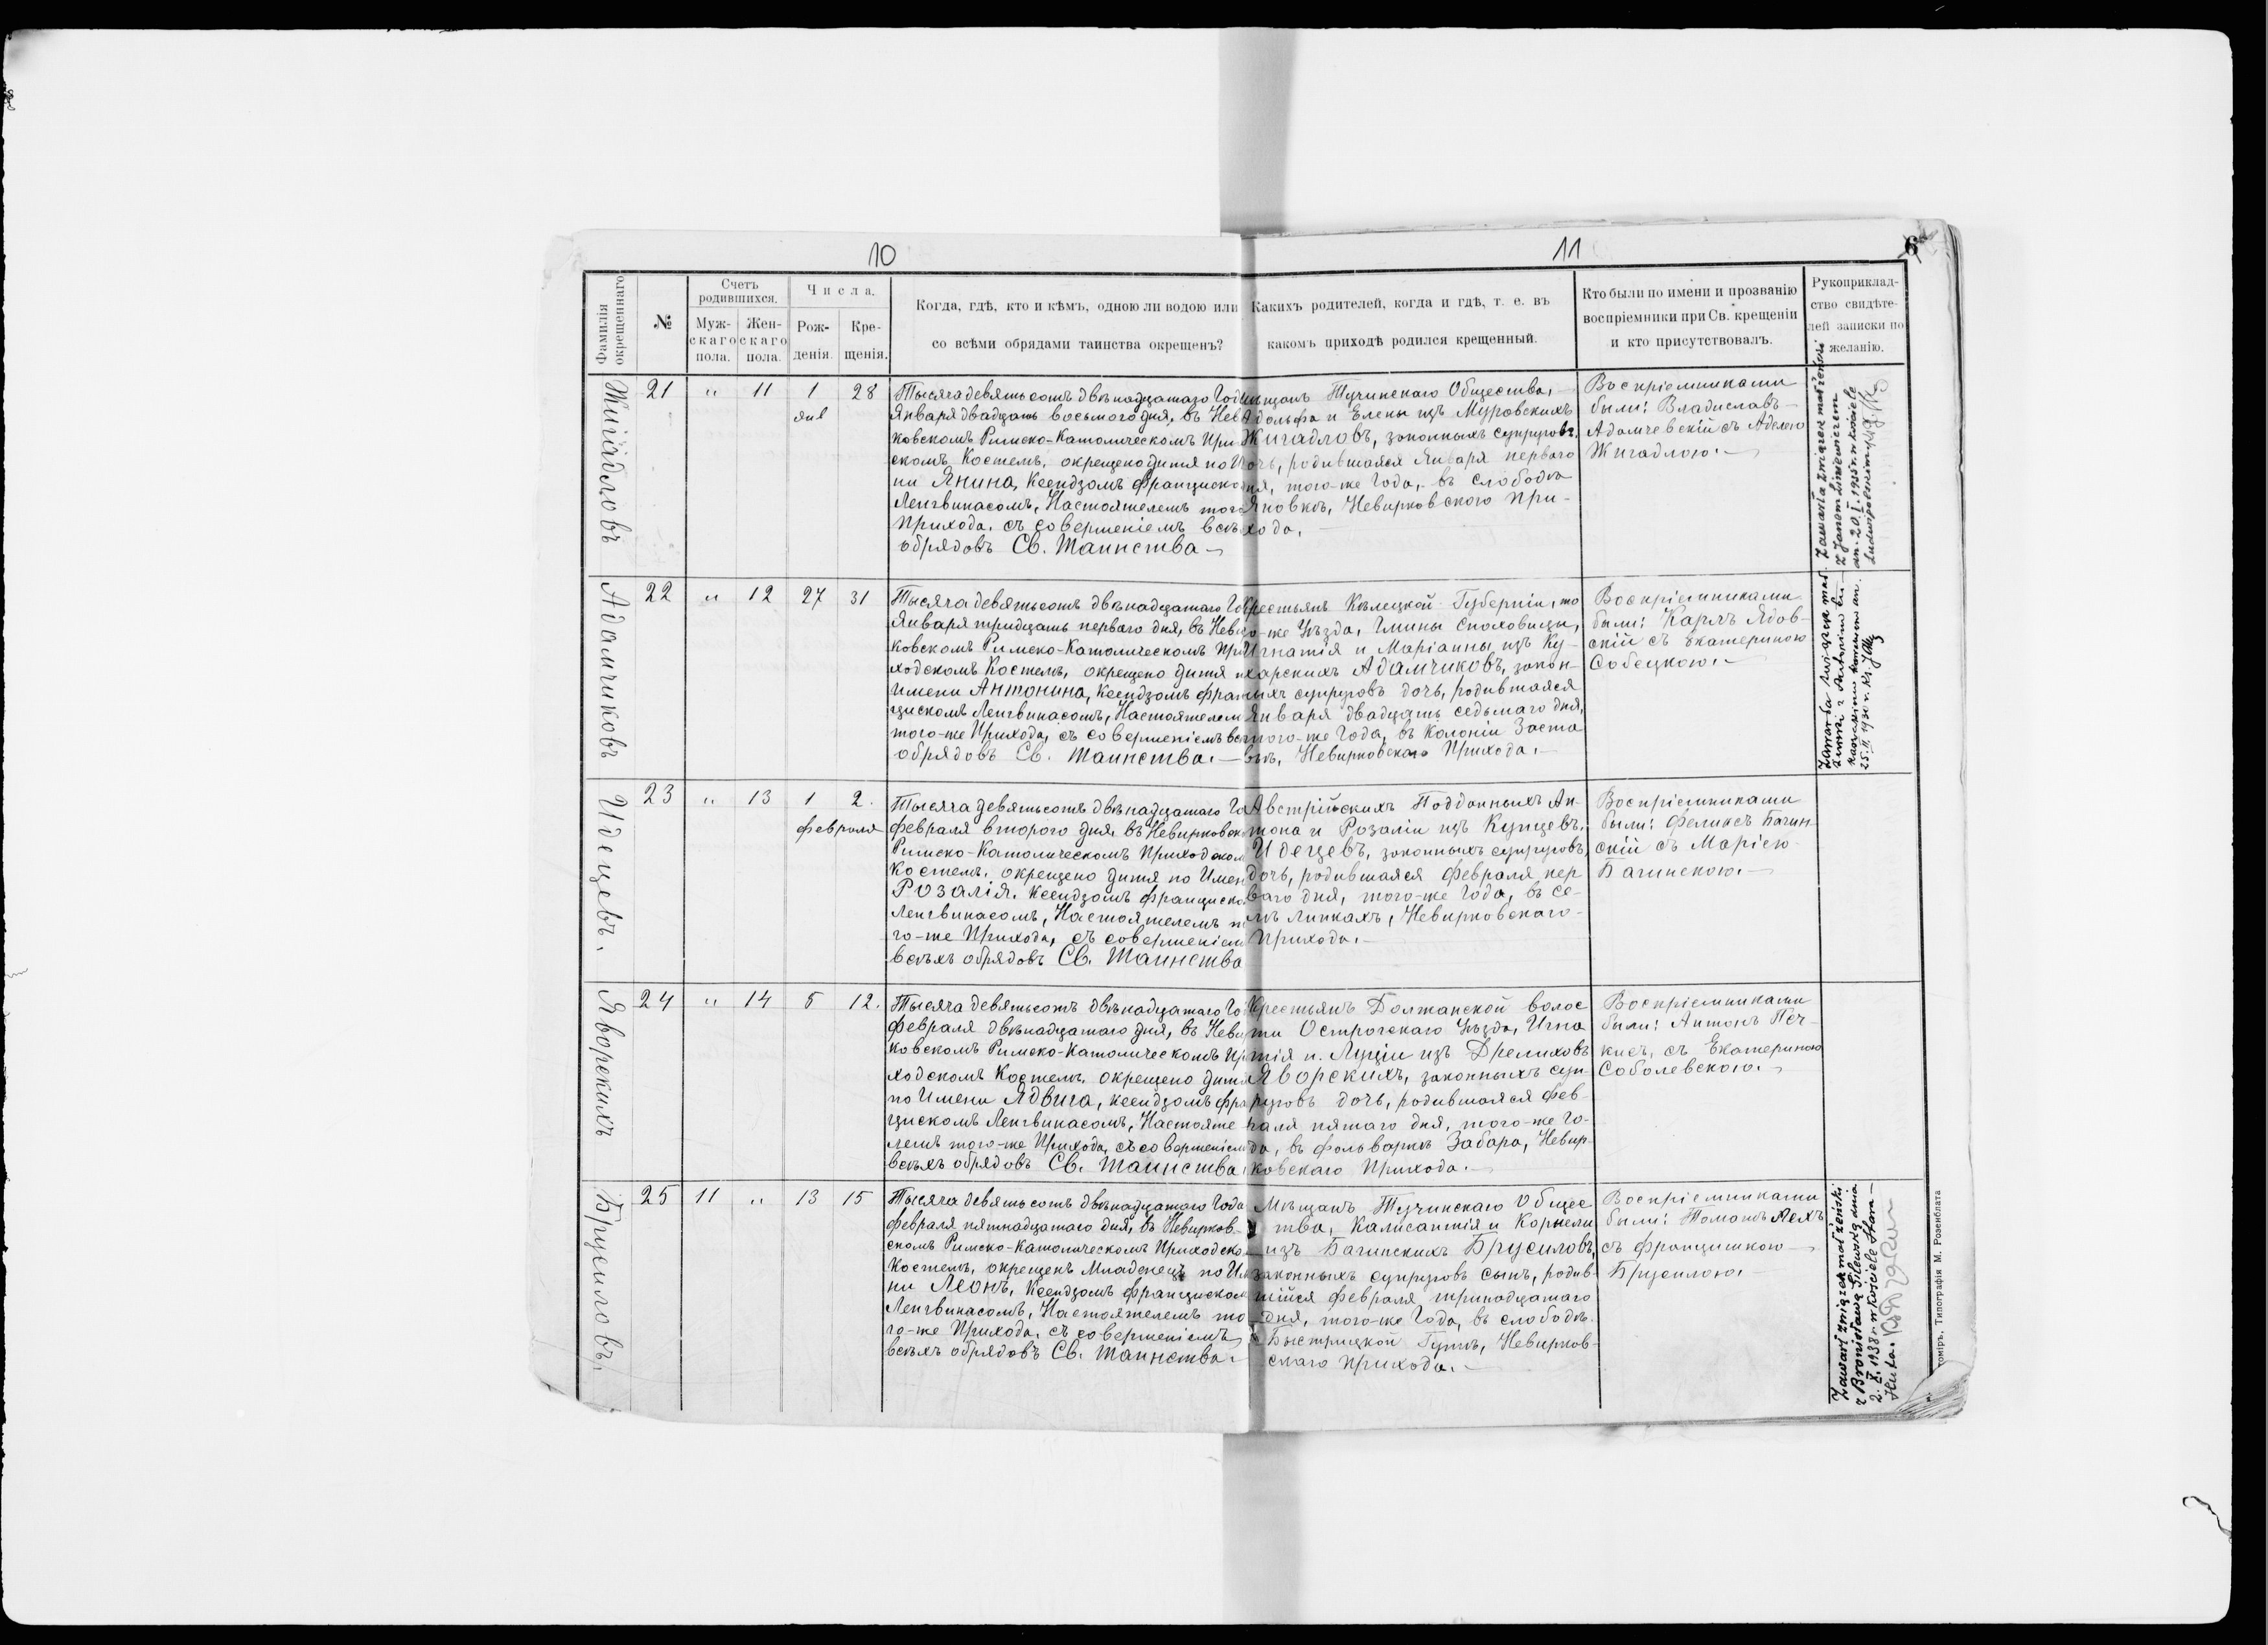 10
11
6
Фамилія
окрещеннаго
№
Счетъ
родившихся.
Муж-
скаго
пола.
Жен-
скаго
пола.
Числа.
Рож-
денія.
Кре-
щенія.
Когда, гдѣ, кто и кѣмъ, одною ли водою или
со всѣми обрядами таинства окрещенъ?
Какихъ родителей, когда и гдѣ, т. е. въ
какомъ приходѣ родился крещенный.
Кто были по имени и прозванію
воспріемники при Св. крещеніи
и кто присутствовалъ.
Рукоприклад-
ство свидѣте-
лей записки по
желанію.
Жигадловъ
21 " 11 1 28
янв
Тысяча девятьсотъ двѣнадцатаго Год
Января двадцать восьмого дня, въ Нев
ковскомъ Римско-Католическомъ При
скомъ Костелѣ, окрещено дитя по И
ни Янина, Ксендзомъ Франциско
Ленгвинасомъ, Настоятелемъ того
Прихода, съ совершеніемъ всѣ
обрядовъ Св. Таинства
щанъ Тучинскаго Общества,
Адольфа и Елены изъ Муровскихъ
Жигадловъ, законныхъ супруговъ,
дочь, родившаяся Января перваго
дня, того-же Года, въ слободѣ
Яновкѣ, Невирковского При-
хода.
Воспріемниками
были: Владиславъ
Адамчевскій съ Аделею
Жигадлою.
Zawarła związek małżeński
z Janem Liniewiczem
dn. 20.I.1935 r. w kościele
Ludwipolskim
Адамчиковъ
22 " 12 27 31
Тысяча девятьсотъ двѣнадцатаго Го
Января тридцать перваго дня, въ Неви
ковскомъ Римско-Католическомъ При
ходскомъ Костелѣ, окрещено дитя п
имени Антонина, Ксендзомъ Фран
цискомъ Ленгвинасомъ, Настоятелем
того-же Прихода, съ совершеніемъ вс
обрядовъ Св. Таинства.
Крестьянъ Кѣлецкой Губерніи, то
го-же Уѣзда, Гмины Снохowицы,
Игнатія и Маріанны изъ Ку-
харскихъ Адамчиковъ, закон-
ныхъ супруговъ дочь, родившаяся
Января двадцать седьмаго дня,
того-же Года, въ Колоніи Заста
вѣ, Невирковскаго Прихода.
Воспріемниками
были: Карлъ Ядов-
скій съ Екатериною
Собецкою.
25.II.1930 r.
Идецевъ.
23 " 13 1 2.
февраля
Тысяча девятьсотъ двѣнадцатаго Го
февраля второго дня, въ Невирковск
Римско-Католическомъ Приходском
Костелѣ, окрещено дитя по Имен
Розалія, Ксендзомъ Франциско
Ленгвинасомъ, Настоятелемъ т
го-же Прихода, съ совершеніем
всѣхъ обрядовъ Св. Таинства
Австрійскихъ Подданныхъ Ан-
тона и Розаліи изъ Купцевъ,
Идецевъ, законныхъ супруговъ,
дочь, родившаяся февраля пер
ваго дня, того-же Года, въ се-
лѣ Липкахъ, Невирковскаго
Прихода.
Воспріемниками
были: Феликсъ Багин-
скій съ Маріею
Багинскою.
Яворскихъ
24 " 14 5 12.
Тысяча девятьсотъ двѣнадцатаго Го
февраля двѣнадцатаго дня, въ Неви
ковскомъ Римско-Католическомъ Пр
ходскомъ Костелѣ, окрещено дитя
по Имени Ядвига, Ксендзомъ Фра
цискомъ Ленгвинасомъ, Настояте
лемъ того-же Прихода, съ совершеніем
всѣхъ обрядовъ Св. Таинства.
Крестьянъ Болжанской волос
ти Острогскаго Уѣзда, Игна
тія и Луціи изъ Дрелиховъ
Яворскихъ, законныхъ суп-
руговъ дочь, родившаяся Фев-
раля пятаго дня, того-же Го-
да, въ фольваркѣ Забара, Невир-
ковскаго Прихода.
Воспріемниками
были: Антонъ Печ-
кисъ, съ Екатериною
Соболевскою.
Брусиловъ.
25 11 " 13 15
Тысяча девятьсотъ двѣнадцатаго Года
февраля пятнадцатаго дня, въ Невирков-
скомъ Римско-Католическомъ Приходско
Костелѣ, окрещенъ Младенецъ по Им
ни Леонъ, Ксендзомъ Франциском
Ленгвинасомъ, Настоятелемъ то
го-же Прихода, съ совершеніемъ
всѣхъ обрядовъ Св. Таинства.
Мѣщанъ Тучинскаго Общес
тва, Калисантія и Корнели
изъ Багинскихъ Брусиловъ,
законныхъ супруговъ сынъ, родив-
шійся февраля тринадцатаго
дня, того-же Года, въ слободѣ
Быстрицкой Гутѣ, Невирков-
скаго Прихода.
Воспріемниками
были: Томашъ Лехъ
съ Францишкою
Брусилою.
Zawarł związek małżeński
z Bronisławą Gilewską dnia
2.X.1938 r. w kościele Stara-
Huta.
томіръ, Типографія М. Розенблата